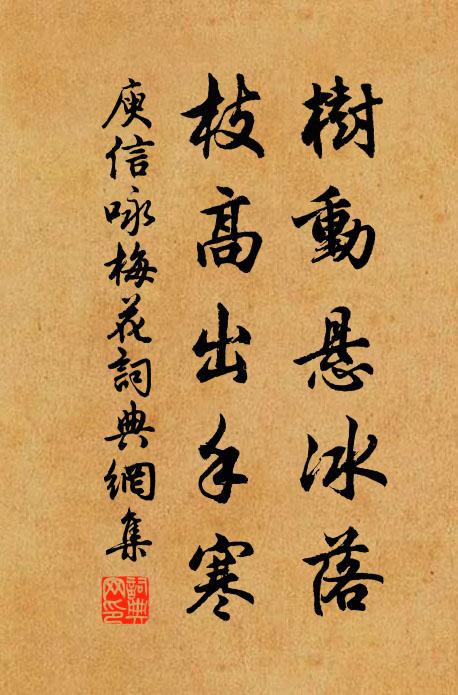 樹動悬冰落
枝高出手寒
庾信咏梅花詞典網集
詞典網印